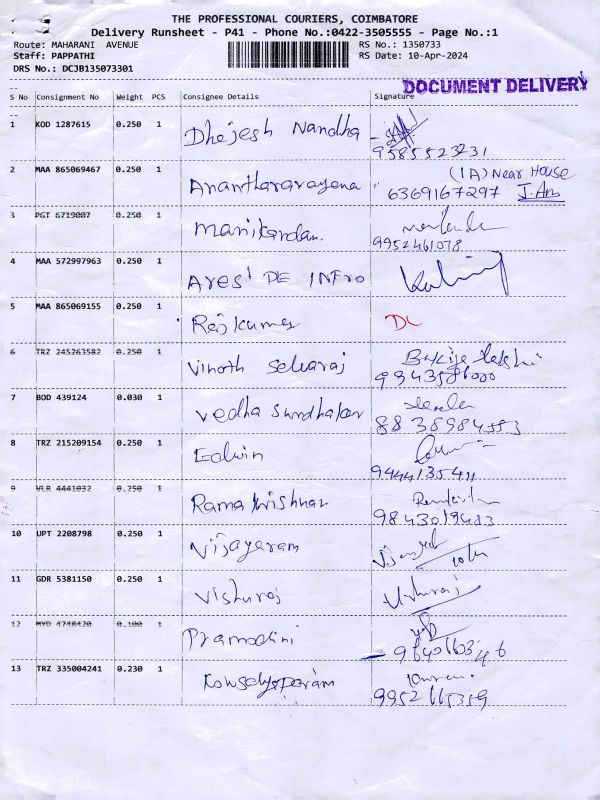 THE PROFESSIONAL COURIERS, COIMBATORE
Delivery Runsheet - P41 - Phone No.:0422-3505555 - Page No.:1
Route: MAHARANI AVENUE RS No.: 1350733
Staff: PAPPATHI RS Date: 10-Apr-2024
DRS No.: DCJB135073301
DOCUMENT DELIVERY
S No Consignment No Weight PCS Consignee Details Signature
1 KOD 1287615 0.250 1 Dhejesh Nandha
9585523231
2 MAA 865069467 0.250 1 Anantharayena " (1A) Near House
6369167297 J.An
3 PGT 6719007 0.250 1 Manikandan.
9952461078
4 MAA 572997963 0.250 1 Ares' DE INFRO
5 MAA 865069155 0.250 1 Rajkumar DL
6 TRZ 245263582 0.250 1 Vinoth Selvaraj
9943586000
7 BOD 439124 0.030 1 Vedha Sundhaker
8838984593
8 TRZ 215209154 0.250 1 Edwin
9444135411
9 VLR 4441032 0.250 1 Ramakrishnan
9843019483
10 UPT 2208798 0.250 1 Vijayaram
11 GDR 5381150 0.250 1 Vishuraj Vishuraj
12 MYD 4748420 0.100 1 Pramodini
13 TRZ 335004241 0.230 1 Kowsalyaparam
9952665359